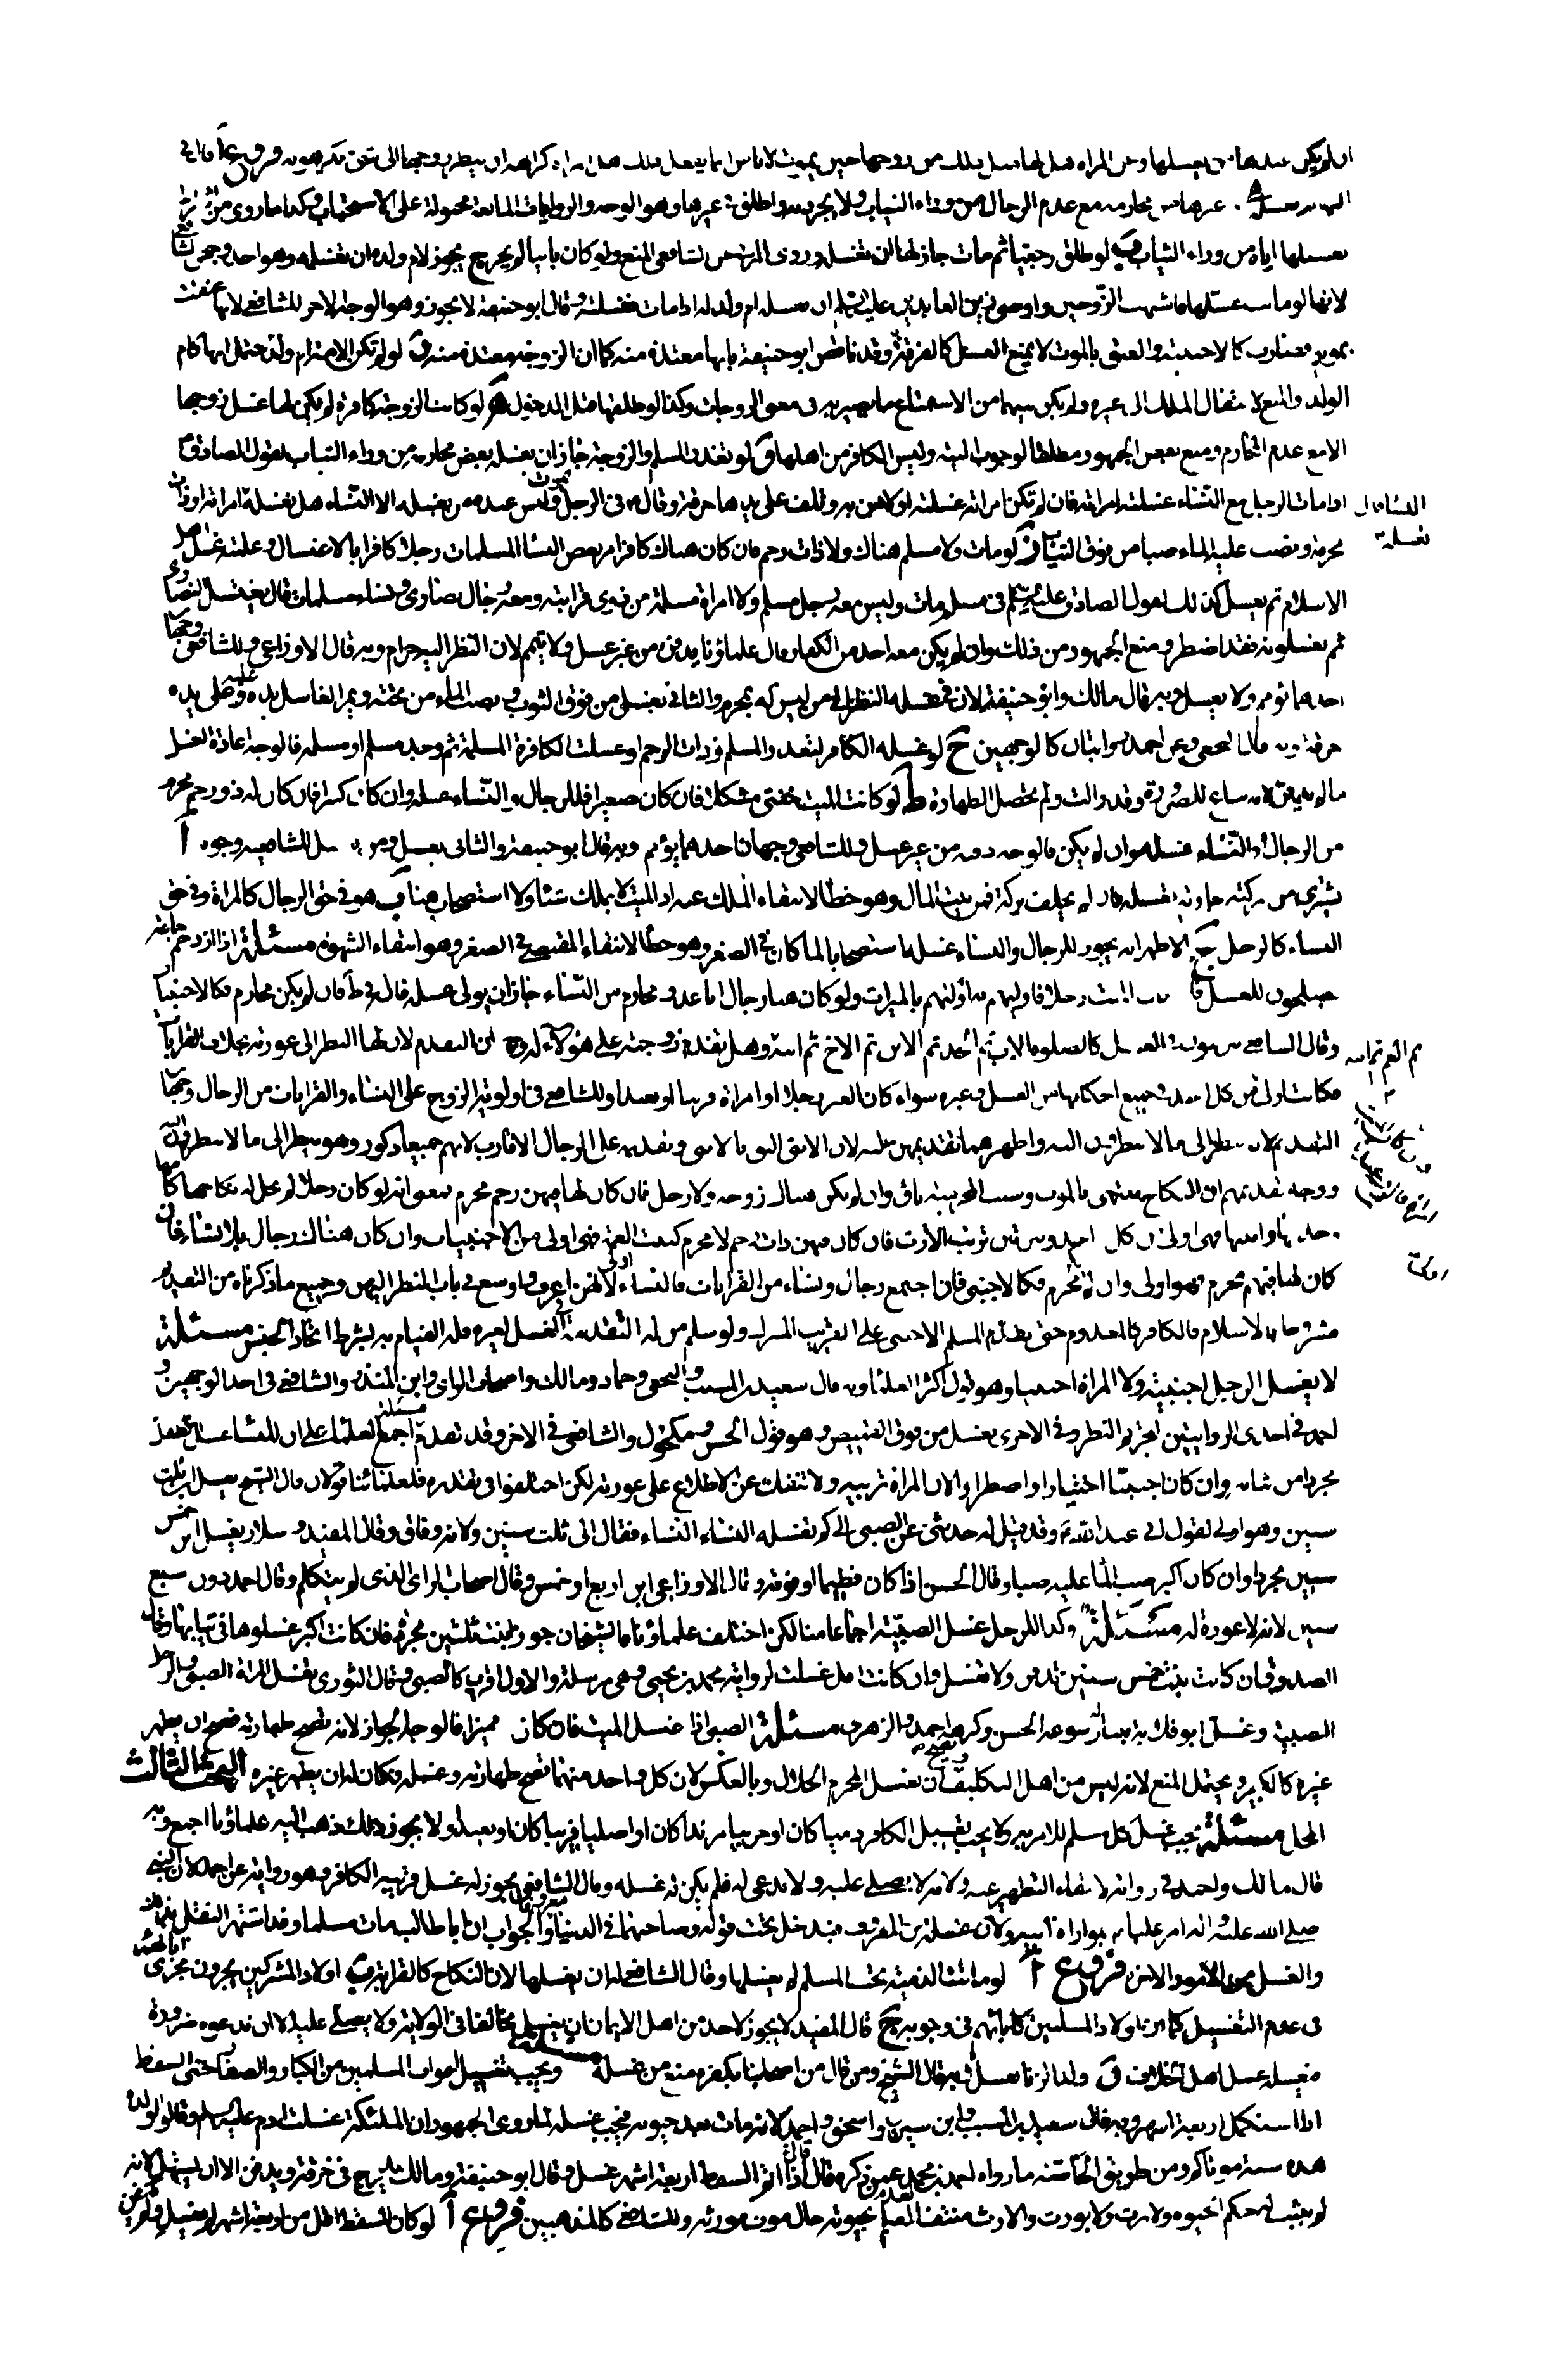 ان لم يكن عندها من يغسلها وعن المراة هل لها ان تنظر الى مثل ذلك من زوجها حين يموت لا باس انما يفعل ذلك اهل المراة كراهة ان ينظر زوجها الى شئ يكرهونه فروع آ
من محارمه مع عدم الرجال من وراء الثياب ولا يجردنه واطلق في غيرها وهو الوجه والروايات المانعة محمولة على الاستحباب وكذا ما روى من
تغسلها اياه من وراء الثياب ب لو طلق رجعيا ثم مات جاز لها ان تغسله وروى المزني عن الشافعي المنع ولو كان باينا لم يجز ج يجوز لام ولده ان تغسله وهو احد وجهي الشافعي
لانها لو ماتت غسلها فاشبهت الزوجين واوصى زين العابدين عليه السلام ان تغسله ام ولد له اذا مات فغسلته وقال ابو حنيفة لا يجوز وهو الوجه الاخر للشافعي لانها عتقت
بموته فصارت كالاجنبية والعتق بالموت لا يمنع الغسل كالفرقة وقد ناقض ابو حنيفة بانها معتدة منه كما ان الزوجة معتدة منه د لو لم تكن الامة ام ولد احتمل انها كام
الولد والمنع لانتقال الملك الى غيره ولم يكن بينهما من الاستمتاع ما تصير به في معنى الزوجات وكذا لو طلقها قبل الدخول ه لو كانت الزوجة كافرة لم يكن لها غسل زوجها
الا مع عدم المحارم ومنع بعض الجمهور مطلقا لوجوب النية وليس الكافر من اهلها و لو تعذر المسلم والزوجة جاز ان يغسله بعض محارمه من وراء الثياب لقول الصادق
اذا مات الرجل مع النساء غسلته امراته فان لم تكن امراته غسلته اولاهن به وتلف على يديها خرقة وقال في الرجل يموت وليس عنده من يغسله الا النساء هل تغسله امراته او ذات
محرمة وتصب عليه الماء صبا من فوق الثياب ز لو مات ولا مسلم هناك ولا ذات رحم فان كان هناك كافر امر بعض النساء المسلمات رجلا كافرا بالاغتسال وعلمته غسل اهل
الاسلام ثم يغسله كذلك لقول الصادق عليه السلم في مسلم مات وليس معه رجل مسلم ولا امراة مسلمة من ذوى قرابته ومعه رجال نصارى ونساء مسلمات قال يغتسل النصارى
ثم يغسلونه فقد اضطر ومنع الجمهور من ذلك وان لم يكن معه احد من الكفار قال علماؤنا يدفن من غير غسل ولا تيمم لان النظر اليه حرام وبه قال الاوزاعي وللشافعي وجهان
احدهما تيمم ولا يغسل وبه قال مالك وابو حنيفة لان في غسله النظر الى من ليس له بمحرم والثاني يغسل من فوق الثوب ويصب الماء من تحته ويمر الغاسل يده وعلى يده
خرقة وبه قال النخعي وعن احمد روايتان كالوجهين ح لو غسله الكافر لتعذر المسلم وذات الرحم او غسلت الكافرة المسلمة ثم وجد مسلم او مسلمة فالوجه اعادة الغسل
ما لم يدفن لانه ساغ للضرورة وقد زالت ولم تحصل الطهارة ط لو كانت الميت خنثى مشكلا فان كان صغيرا فللرجال والنساء غسله وان كان كبيرا فان كان له ذو رحم محرم
من الرجال او النساء غسله وان لم يكن فالوجه دفنه من غير غسل وللشافعي وجهان احدهما يؤمم وبه قال ابو حنيفة والثاني يغسل للشافعية وجوه آ
يشترى من تركته جارية تغسله فان لم يخلف تركة فمن بيت المال وهو خطا لانتفاء الملك عنه اذ الميت لا يملك شيئا ولا استصحاب هنا ب هو في حق الرجال كالمراة وفي حق
النساء كالرجل ج الاظهر انه يجوز للرجال والنساء غسله استصحابا لما كان في الصغر وهو خطا لانتفاء المقتضي في الصغر وهو انتفاء الشهوة مسئلة اذا ازدحم جماعة
يصلحون للغسل فان كان الميت رجلا فاولهم به اولهم بالميراث ولو كان هناك رجال اباعد ومحارم من النساء جاز ان يتولى غسله قال في ط فان لم يكن محارم فكالاجنبيات
وقال الشافعي يترتبون في الغسل كالصلوة الاب ثم الجد ثم الابن ثم الاخ ثم ابنه وهل تقدم زوجته على هؤلاء له وجهان التقدم لان لها النظر الى عورته بخلاف القرابات
فكانت اولى من كل احد في جميع احكامها من الغسل وغيره سواء كان الغير رجلا او امراة قريبا او بعيدا وللشافعي في اولوية الزوج على النساء والقرابات من الرجال وجهان
التقديم لانه ينظر الى ما لا ينظرون اليه واظهرهما تقديمهن عليه لان الانثى اليق بالانثى وتقديمه على الرجال الاقارب لانهم جميعا ذكور وهو ينظر الى ما لا ينظرون اليه
ووجه تقديمهم ان النكاح ينتهى بالموت وسبب المحرمية باق وان لم يكن هناك زوجة ولا رجل فان كان لها فيهن رحم محرم بمعنى انه لو كان رجلا لم يحل له نكاحها كامها
وجدتها وابنتها فهي اولى من كل احد ويترتبن ترتيب الارث فان كان فيهن ذات رحم لا محرم كبنت العمة فهي اولى من الاجنبيات وان كان هناك رجال بلا نساء فان
كان لها فيهم محرم فهو اولى وان لم محرم فكالاجنبي فان اجتمع رجال ونساء من القرابات فالنساء اولى لانهن اعرف واوسع في باب النظر اليهن وجميع ما ذكرناه من التقديم
مشروط بالاسلام فالكافر كالمعدوم حتى يقدم المسلم الاجنبي على القريب المشرك ولو سلم من له التقدمة في الغسل لغيره فله القيام به بشرط اتحاد الجنس مسئلة
لا يغسل الرجل اجنبية ولا المراة اجنبيا وهو قول اكثر العلماء وبه قال سعيد بن المسيب والنخعي وحماد ومالك واصحاب الراى وابن المنذر والشافعي في احد الوجهين و
احمد في احدى الروايتين لتحريم النظر وفي الاخرى يغسل من فوق القميص وهو قول الحسن ومكحول والشافعي في الاخر وقد تقدم مسئلة اجمع العلماء على ان للنساء غسل الطفل
مجردا من ثيابه وان كان اجنبيا اختيارا او اضطرارا لان المراة تربيه ولا تنفك عن الاطلاع على عورته لكن اختلفوا في تقديره فلعلمائنا قولان قال الشيخ يغسل ابن ثلث
سنين وهو اولى لقول ابي عبد الله ع وقد قيل له حدثني عن الصبي الى كم تغسله النساء فقال الى ثلث سنين ولانه وفاق وقال المفيد وسلار يغسل ابن خمس
سنين مجردا وان كان اكبر صب الماء عليه صبا وقال الحسن اذا كان فطيما او فوقه وقال الاوزاعي ابن اربع او خمس وقال اصحاب الراى الذى لم يتكلم وقال احمد دون سبع
سنين لانه لا عورة له مسئلة وكذا للرجل غسل الصبية اجماعا منا لكن اختلف علماؤنا فالشيخان جوزا بنت ثلث سنين مجردة فان كانت اكبر غسلوها في ثيابها وقال
الصدوق ان كانت بنت خمس سنين تدفن ولا تغسل وان كانت اقل غسلت لرواية محمد بن يحيى وهي مرسلة والاول اقرب كالصبي وقال الثوري تغسل المراة الصبي والرجل
الصبية وغسل ابو قلابة بنتا له سوغه الحسن وكرهه احمد والزهرى مسئلة الصبي اذا غسل الميت فان كان مميزا فالوجه الجواز لانه تصح طهارته فصح ان يطهر
غيره كالكبير ويحتمل المنع لانه ليس من اهل التكليف ويصح ان يغسل المحرم الحلال وبالعكس لان كل واحد منهما تصح طهارته وغسله فكان له ان يطهر غيره البحث الثالث
المحل مسئلة يجب غسل كل مسلم للامر به ولا يجب تغسيل الكافر ذميا كان او حربيا مرتدا كان او اصليا قريبا كان او بعيدا ولا يجوز ذلك ذهب اليه علماؤنا اجمع وبه
قال مالك واحمد في رواية لانتفاء التطهير عنه ولانه لا يصلى عليه ولا يدعى له فلم يكن له غسله وقال الشافعي يجوز له غسل قريبه الكافر وهو رواية عن احمد لان النبي
صلى الله عليه واله امر عليا ع بمواراة ابيه ولان غسله من المعروف فيدخل تحت قوله وصاحبهما في الدنيا معروفا والجواب ان ابا طالب مات مسلما وقد اشتهر النقل بذلك
والغسل من الامور الاخروية فروع آ لو ماتت الذمية تحت المسلم لم يغسلها وقال الشافعي له ان يغسلها لان النكاح كالقرابة ب اولاد المشركين يجرون مجرى ابائهم
في عدم التغسيل كما ان اولاد المسلمين كابائهم في وجوبه ج قال المفيد لا يجوز لاحد من اهل الايمان ان يغسل مخالفا في الولاية ولا يصلى عليه الا ان تدعوه ضرورة
فيغسله غسل اهل الخلاف د ولد الزنا يغسل وبه قال الشيخ ومن قال من اصحابنا بكفره منع من غسله مسئلة ويجب تغسيل اموات المسلمين من الكبار والصغار حتى السقط
اذا استكمل اربعة اشهر وبه قال سعيد بن المسيب وابن سيرين واسحق واحمد لانه مات بعد حيوته فيجب غسله لما روى الجمهور ان الملئكة غسلت ادم عليه السلم وقالوا لولده
هذه سنة موتاكم ومن طريق الخاصة ما رواه احمد بن محمد عمن ذكره قال اذا اتم السقط اربعة اشهر غسل وقال ابو حنيفة ومالك يدرج في خرقة ويدفن الا ان يستهل لانه
لم يثبت له حكم الحيوة ولا يرث ولا يورث والارث منتف لعدم العلم بحيوته حال موت مورثه وللشافعي كالمذهبين فروع آ لو كان السقط اقل من اربعة اشهر لم يغسل ولم يكفن